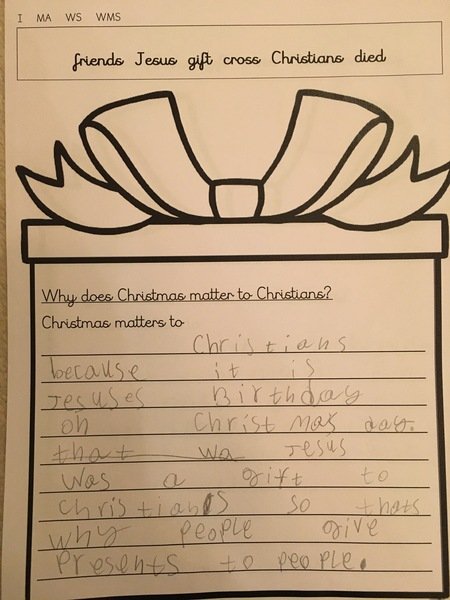 I MA WS WMS
friends Jesus gift cross Christians died
Why does Christmas matter to Christians?
Christmas matters to
Christians
because it is
Jesuses Birthday
on Christmas day.
that wa Jesus
was a gift to
Christians so thats
why people give
Presents to people.